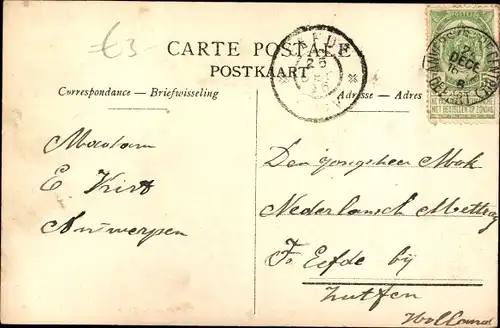 €3-
CARTE POSTALE
POSTKAART
Correspondance — Briefwisseling
Adresse — Adres
Madam
E
Antwerpen
Den jongeheer Mok
Nederlansch
Te Eefde bij
Zutfen
Holland
EEFDE
25
DEC
24
DECE
NE PAS LIVRER LE DIMANCHE
NIET BESTELLEN OP ZONDAG